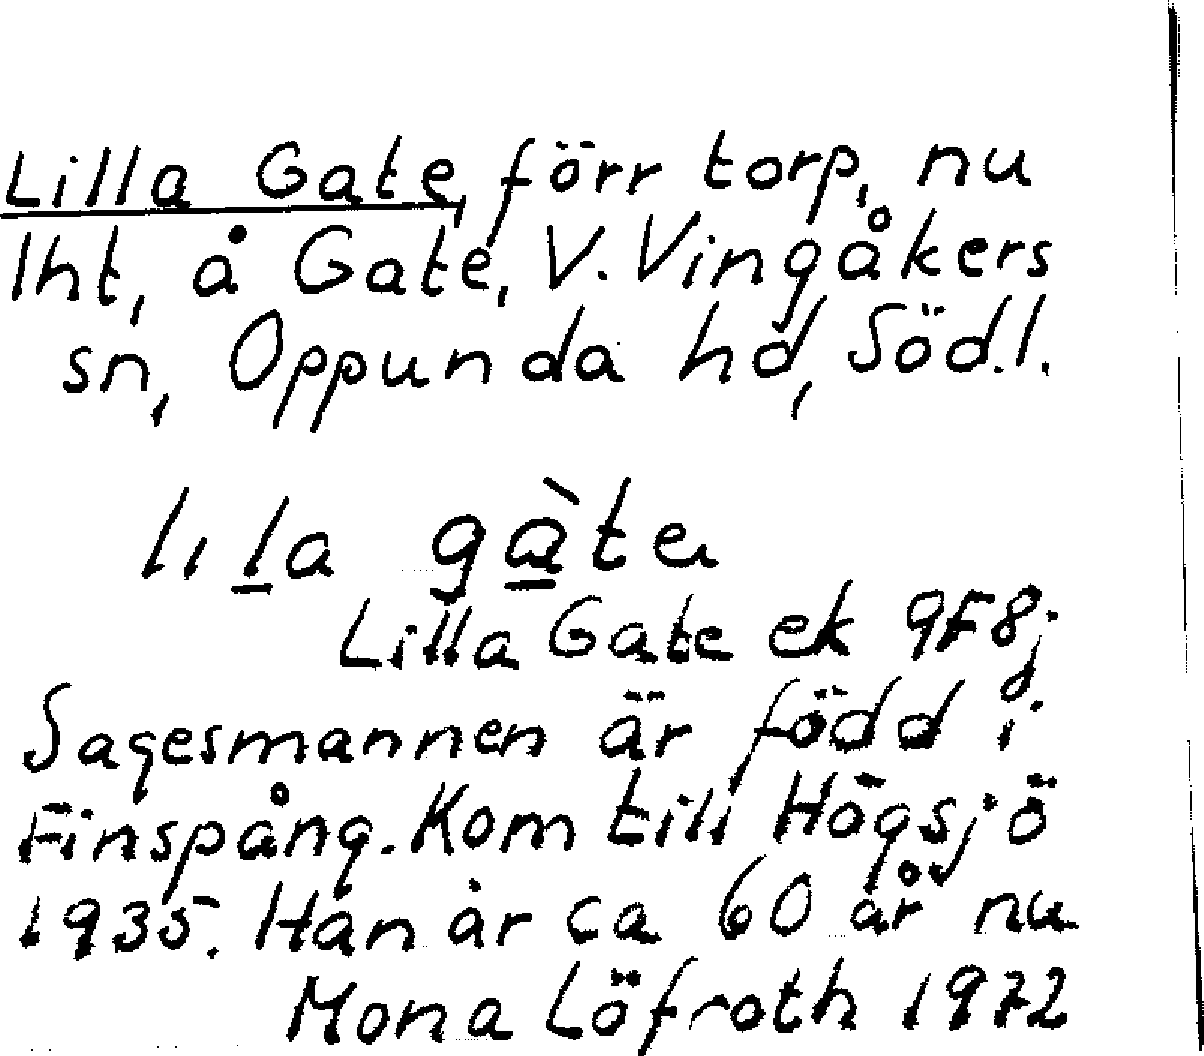 Lilla Gate, förr torp, nu
lht, å Gate, V. Vingåkers
sn, Oppunda hd, Söd.l.
lıla gàte
Lilla Gate ek 9F8j
Sagesmannen är född i
Finspång. Kom till Högsjö
1935. Han är ca 60 år nu
Mona Löfroth 1972